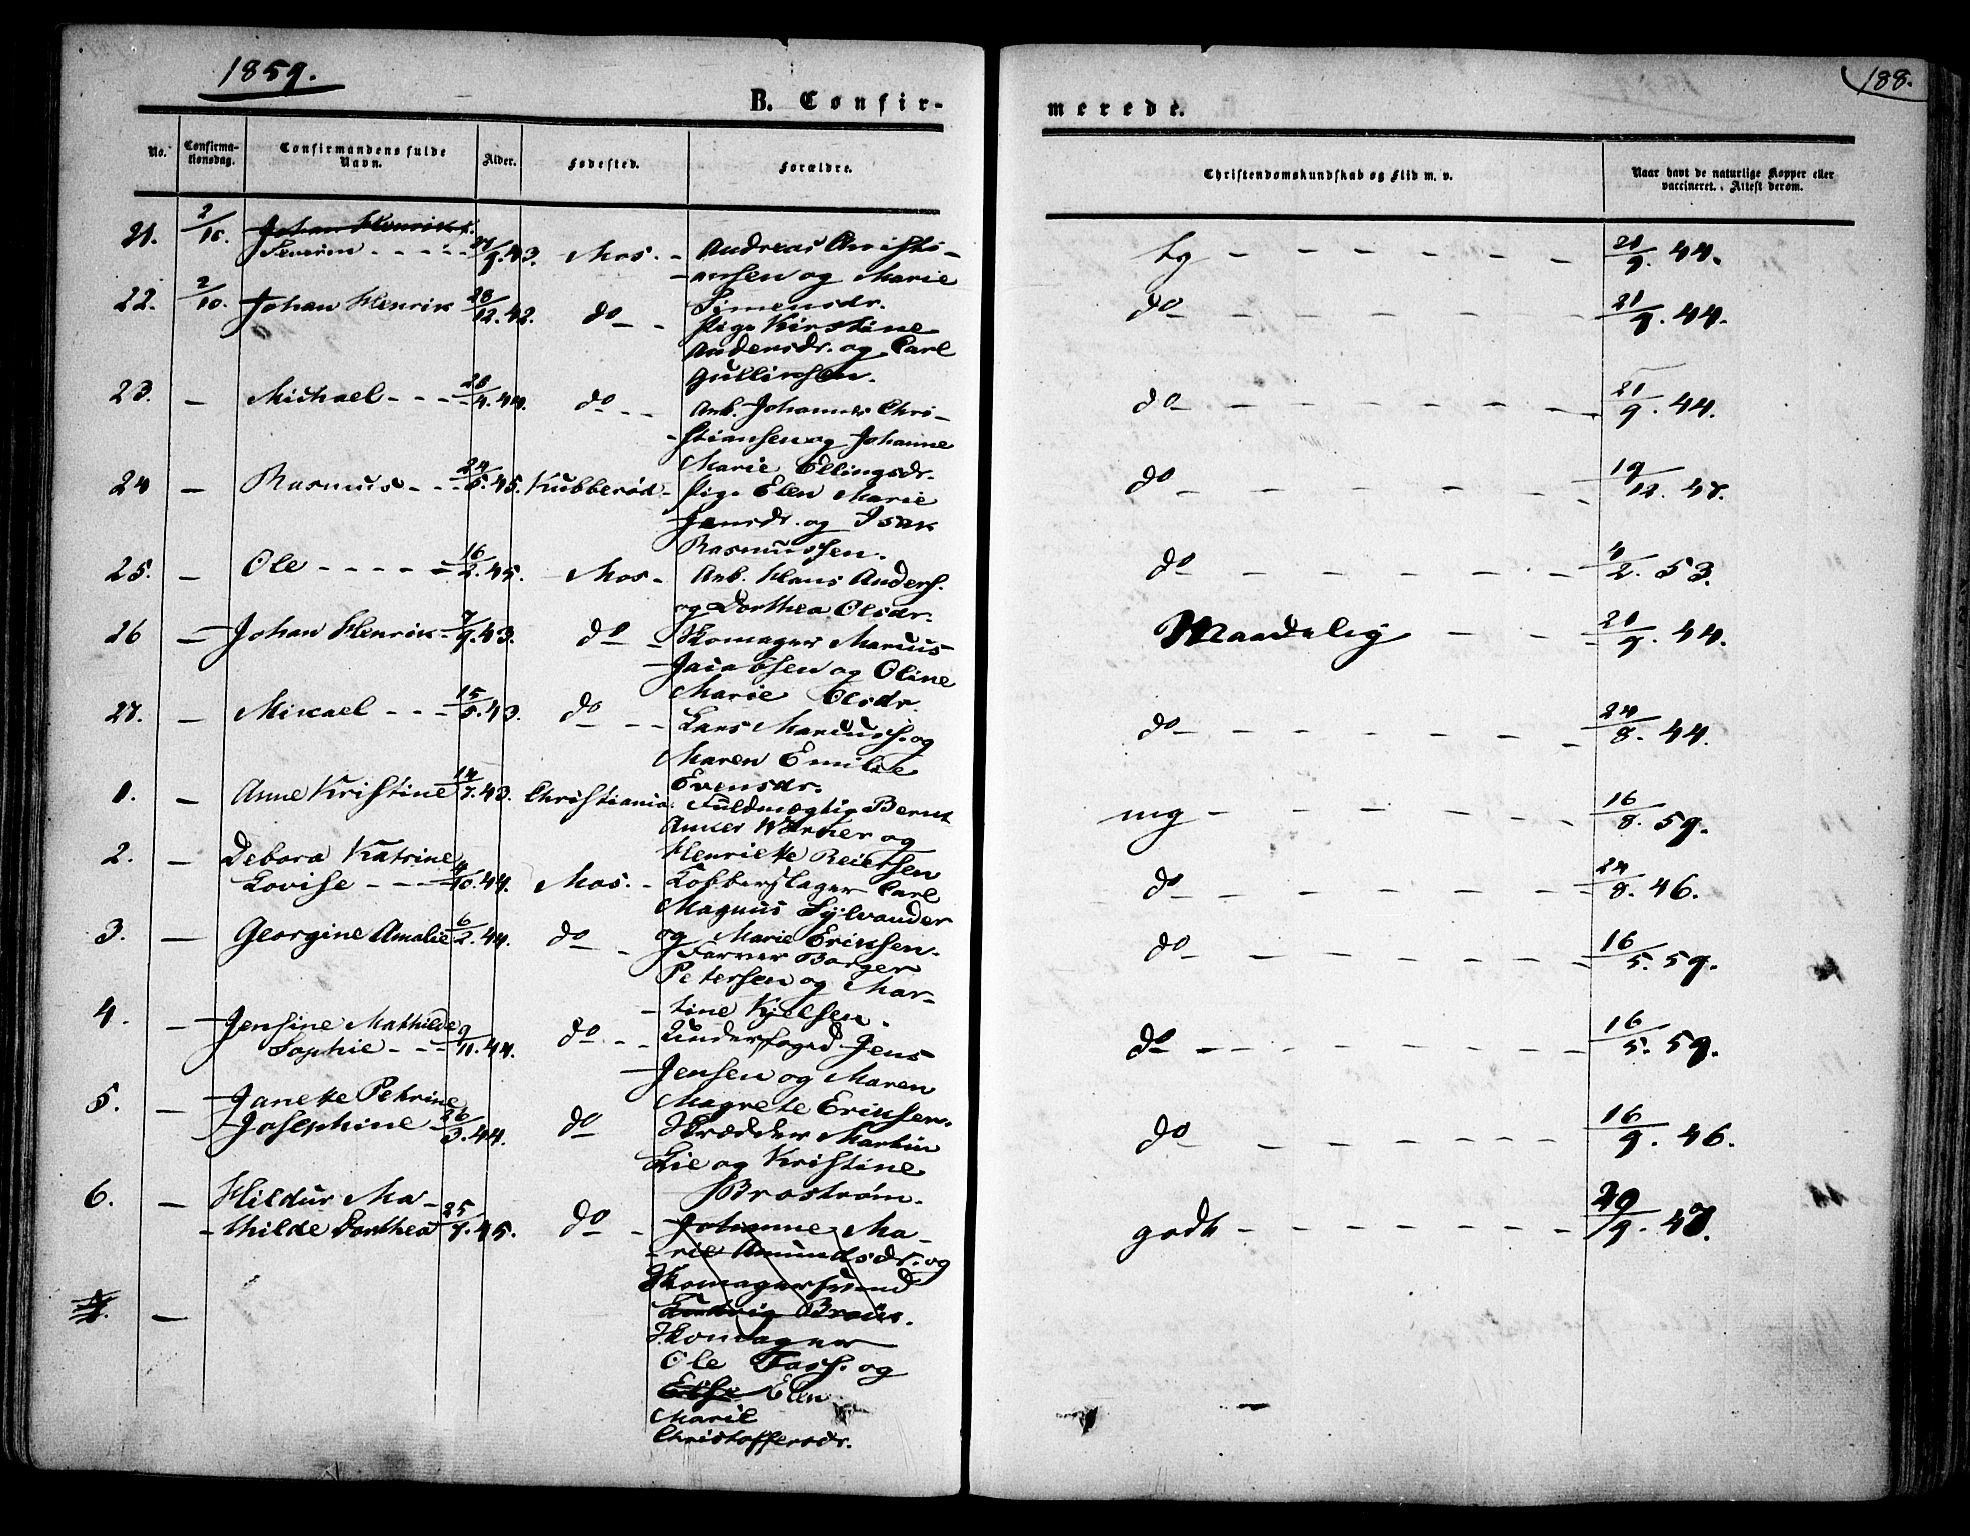 1859.
188.
B. Confir-
merede.
No.
Confirma-
tionsdag.
Confirmandens fulde
Navn.
Alder.
Fødested.
Forældre.
Christendomskundskab og Flid m. v.
Naar havt de naturlige Kopper eller
vaccineret. Attest derom.
21. 2/10. Johan Henrik
Severin - - - - 27/9.43. Mos. - Andreas Christi- tg - - - - - - 21/9. 44.
ansen og Marie
Simensdr.
22. 2/10. Johan Henrik 28/12.42. do - - Pige Kirstine do - - - - - - 21/9. 44.
Andersdr. og Carl
Gullichsen.
23. - Michael - - - 28/4.44. do - - Arb. Johannes Chri- do - - - - - - 21/9. 44.
stiansen og Johanne
Marie Ellingsdr.
24 - Rasmus - - - 24/5.45. Kubberød - Pige Elen Marie do - - - - - - 19/12. 47.
Jensdr. og Isak
Rasmussen.
25. - Ole - - - - - 16/2.45. - Mos - Arb. Hans Anders. do - - - - - - 4/2. 53.
og Dorthea Olsdr.
26 - Johan Henrik - 7/9.43. do - Skomager Marius Maadelig - - - 21/9. 44.
Jacobsen og Oline
Marie Olsdr.
27. - Mikael - - - 15/5.43. do - - Lars Mariuss. og do - - - - - - 24/8. 44.
Maren Emilie
Evensdr.
1. - Anne Kristine 14/7.43. Christiania. Fuldmægtig Bernt mg - - - - - - 16/8. 59.
Anker Wørner og
Henriette Reiersen
2. - Debora Katrine
Lovise - - - 4/10.44. Mos. - Kobberslager Carl do - - - - - - 24/8. 46.
Magnus Sylvander
og Marie Eriksen.
3. - Georgine Amalie 6/2.44. do - - Farver Borger do - - - - - - 16/5. 59.
Petersen og Mar-
tine Kjelsen.
4. - Jensine Mathilde
Sophie - - - 9/11.44. do - - Underfoged Jens do - - - - - - 16/5. 59.
Jensen og Maren
Magrete Eriksen.
5. - Janette Petrine
Josephine - 26/3.44. do Skrædder Martin do - - - - - - 16/9. 46.
Lie og Kristine
Brostrøm.
6. - Hildur Ma-
thilde Dorthea 25/7.45. do - Johanne Ma- godt - - - - - - 29/9. 47.
rie Amundsdr. og
Skomagersvend
Ludvig
7. - Skomager
Ole og
Else Elen
Marie
Christoffersdr.